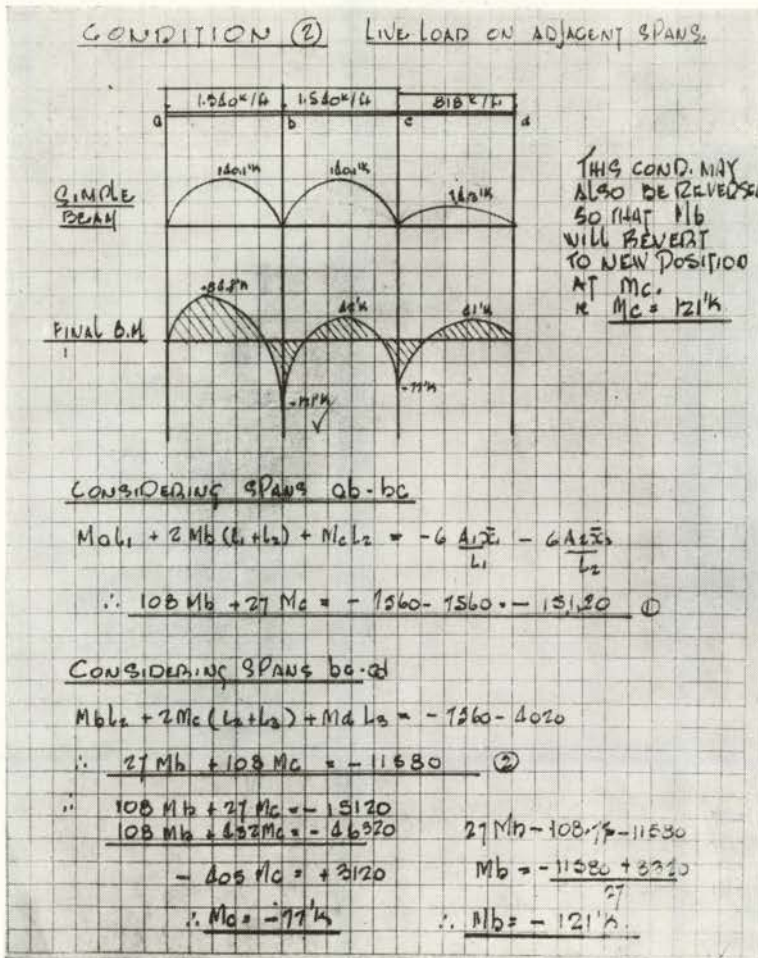 CONDITION ② LIVE LOAD ON ADJACENT SPANS.
1.540ᴷ/ft 1.540ᴷ/ft .818ᴷ/ft
a b c d
SIMPLE
BEAM
140.1'K 140.1'K
THIS COND. MAY
ALSO BE REVERSED
SO THAT Mb
WILL REVERT
TO NEW POSITION
AT Mc.
Mc = 121'K
FINAL B.M
48'K 41'K
-121'K -77'K
CONSIDERING SPANS ab-bc
MaL₁ + 2Mb(L₁+L₂) + McL₂ = -6 A₁x̄₁/L₁ - 6 A₂x̄₂/L₂
∴ 108 Mb + 27 Mc = - 7560 - 7560 = - 15,120 ①
CONSIDERING SPANS bc-cd
MbL₂ + 2Mc(L₂+L₃) + Md L₃ = - 7560 - 4020
∴ 27 Mb + 108 Mc = - 11580 ②
∴ 108 Mb + 27 Mc = - 15120
108 Mb + 432 Mc = - 46320
- 405 Mc = + 3120
∴ Mc = - 77'K
27 Mb - 108 - 11580
Mb = - 11580 + 8320
27
∴ Mb = - 121'K.